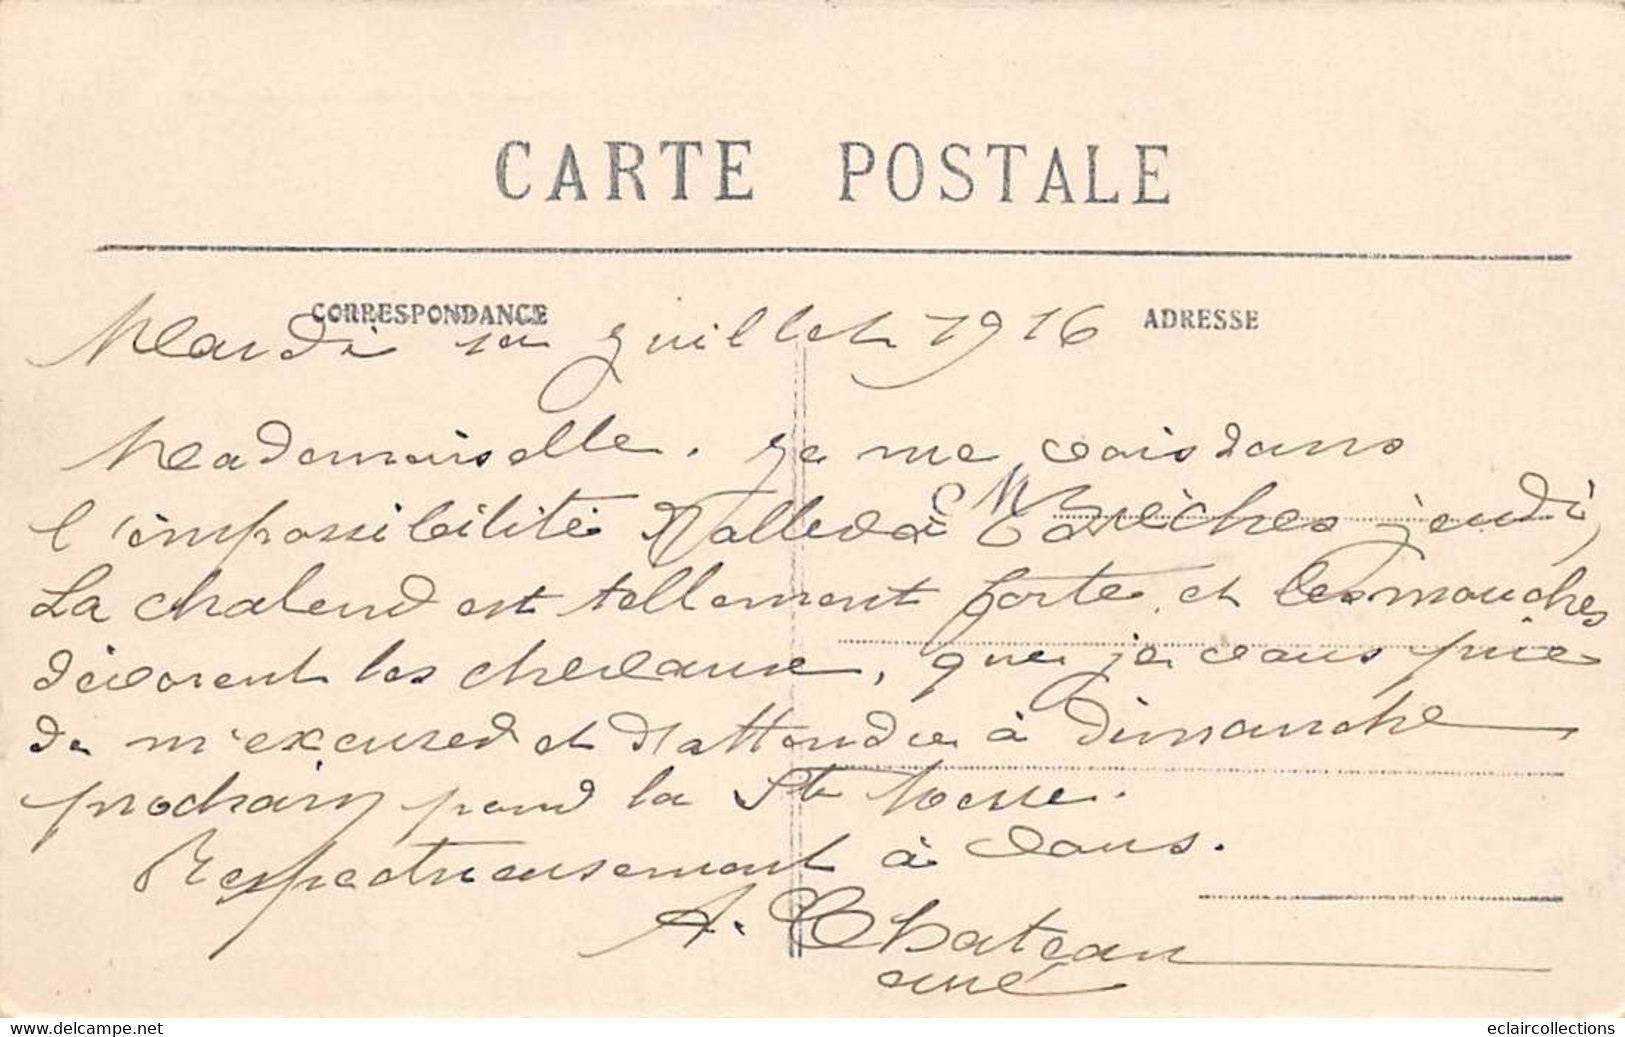 CARTE POSTALE
CORRESPONDANCE
ADRESSE
Mardi 1er Juillet 1916
Mademoiselle. Je me vois dans
l'impossibilité d'aller à Brèches jeudi,
La chaleur est tellement forte et les mouches
dévorent les chevaux, que je vous prie
de m'excuser et d'attendre à Dimanche
prochain pour la Ste Messe.
Respectueusement à vous.
A. Chateau
curé
www.delcampe.net
eclaircollections